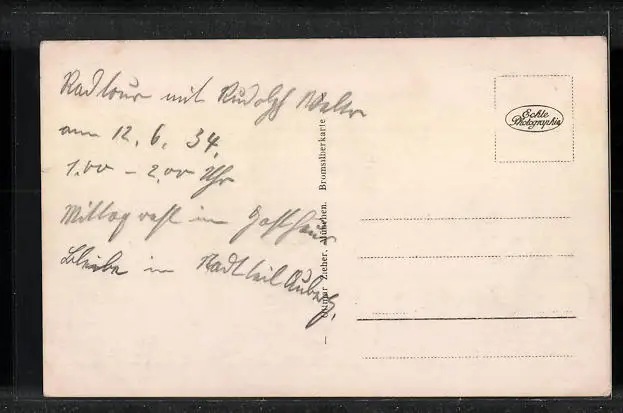 Radtour mit Rudolph Walter
am 12. 6. 34.
1.00 – 2.00 Uhr
Mittagrast im Gasthaus
Bleibe in Stadtteil
Echte
Photographie
— Ottmar Zieher, München. Bromsilberkarte